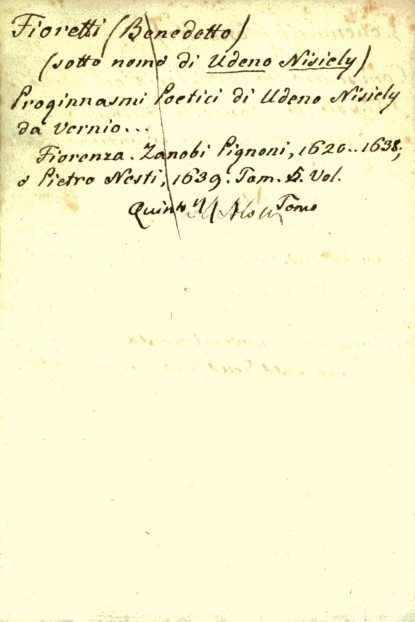 Fioretti (Benedetto)
(sotto nome di Udeno Nisiely)
Proginnasmi Poetici di Udeno Nisiely
da Vernio...
Fiorenza. Zanobi Pignoni, 1620..1638;
e Pietro Nesti, 1639. Tom. 5. Vol.
Quinto Tomo